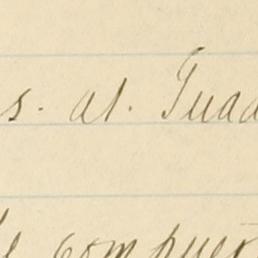 s. at. Guad
le comput